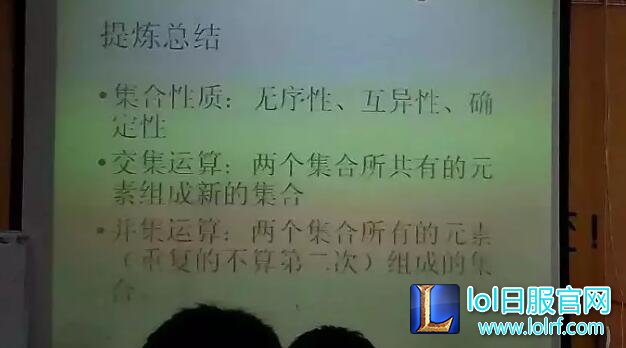 提炼总结
•集合性质：无序性、互异性、确
定性
•交集运算：两个集合所共有的元
素组成新的集合
•并集运算：两个集合所有的元素
（重复的不算第二次）组成的集
合
！
lol日服官网
www.lolrf.com